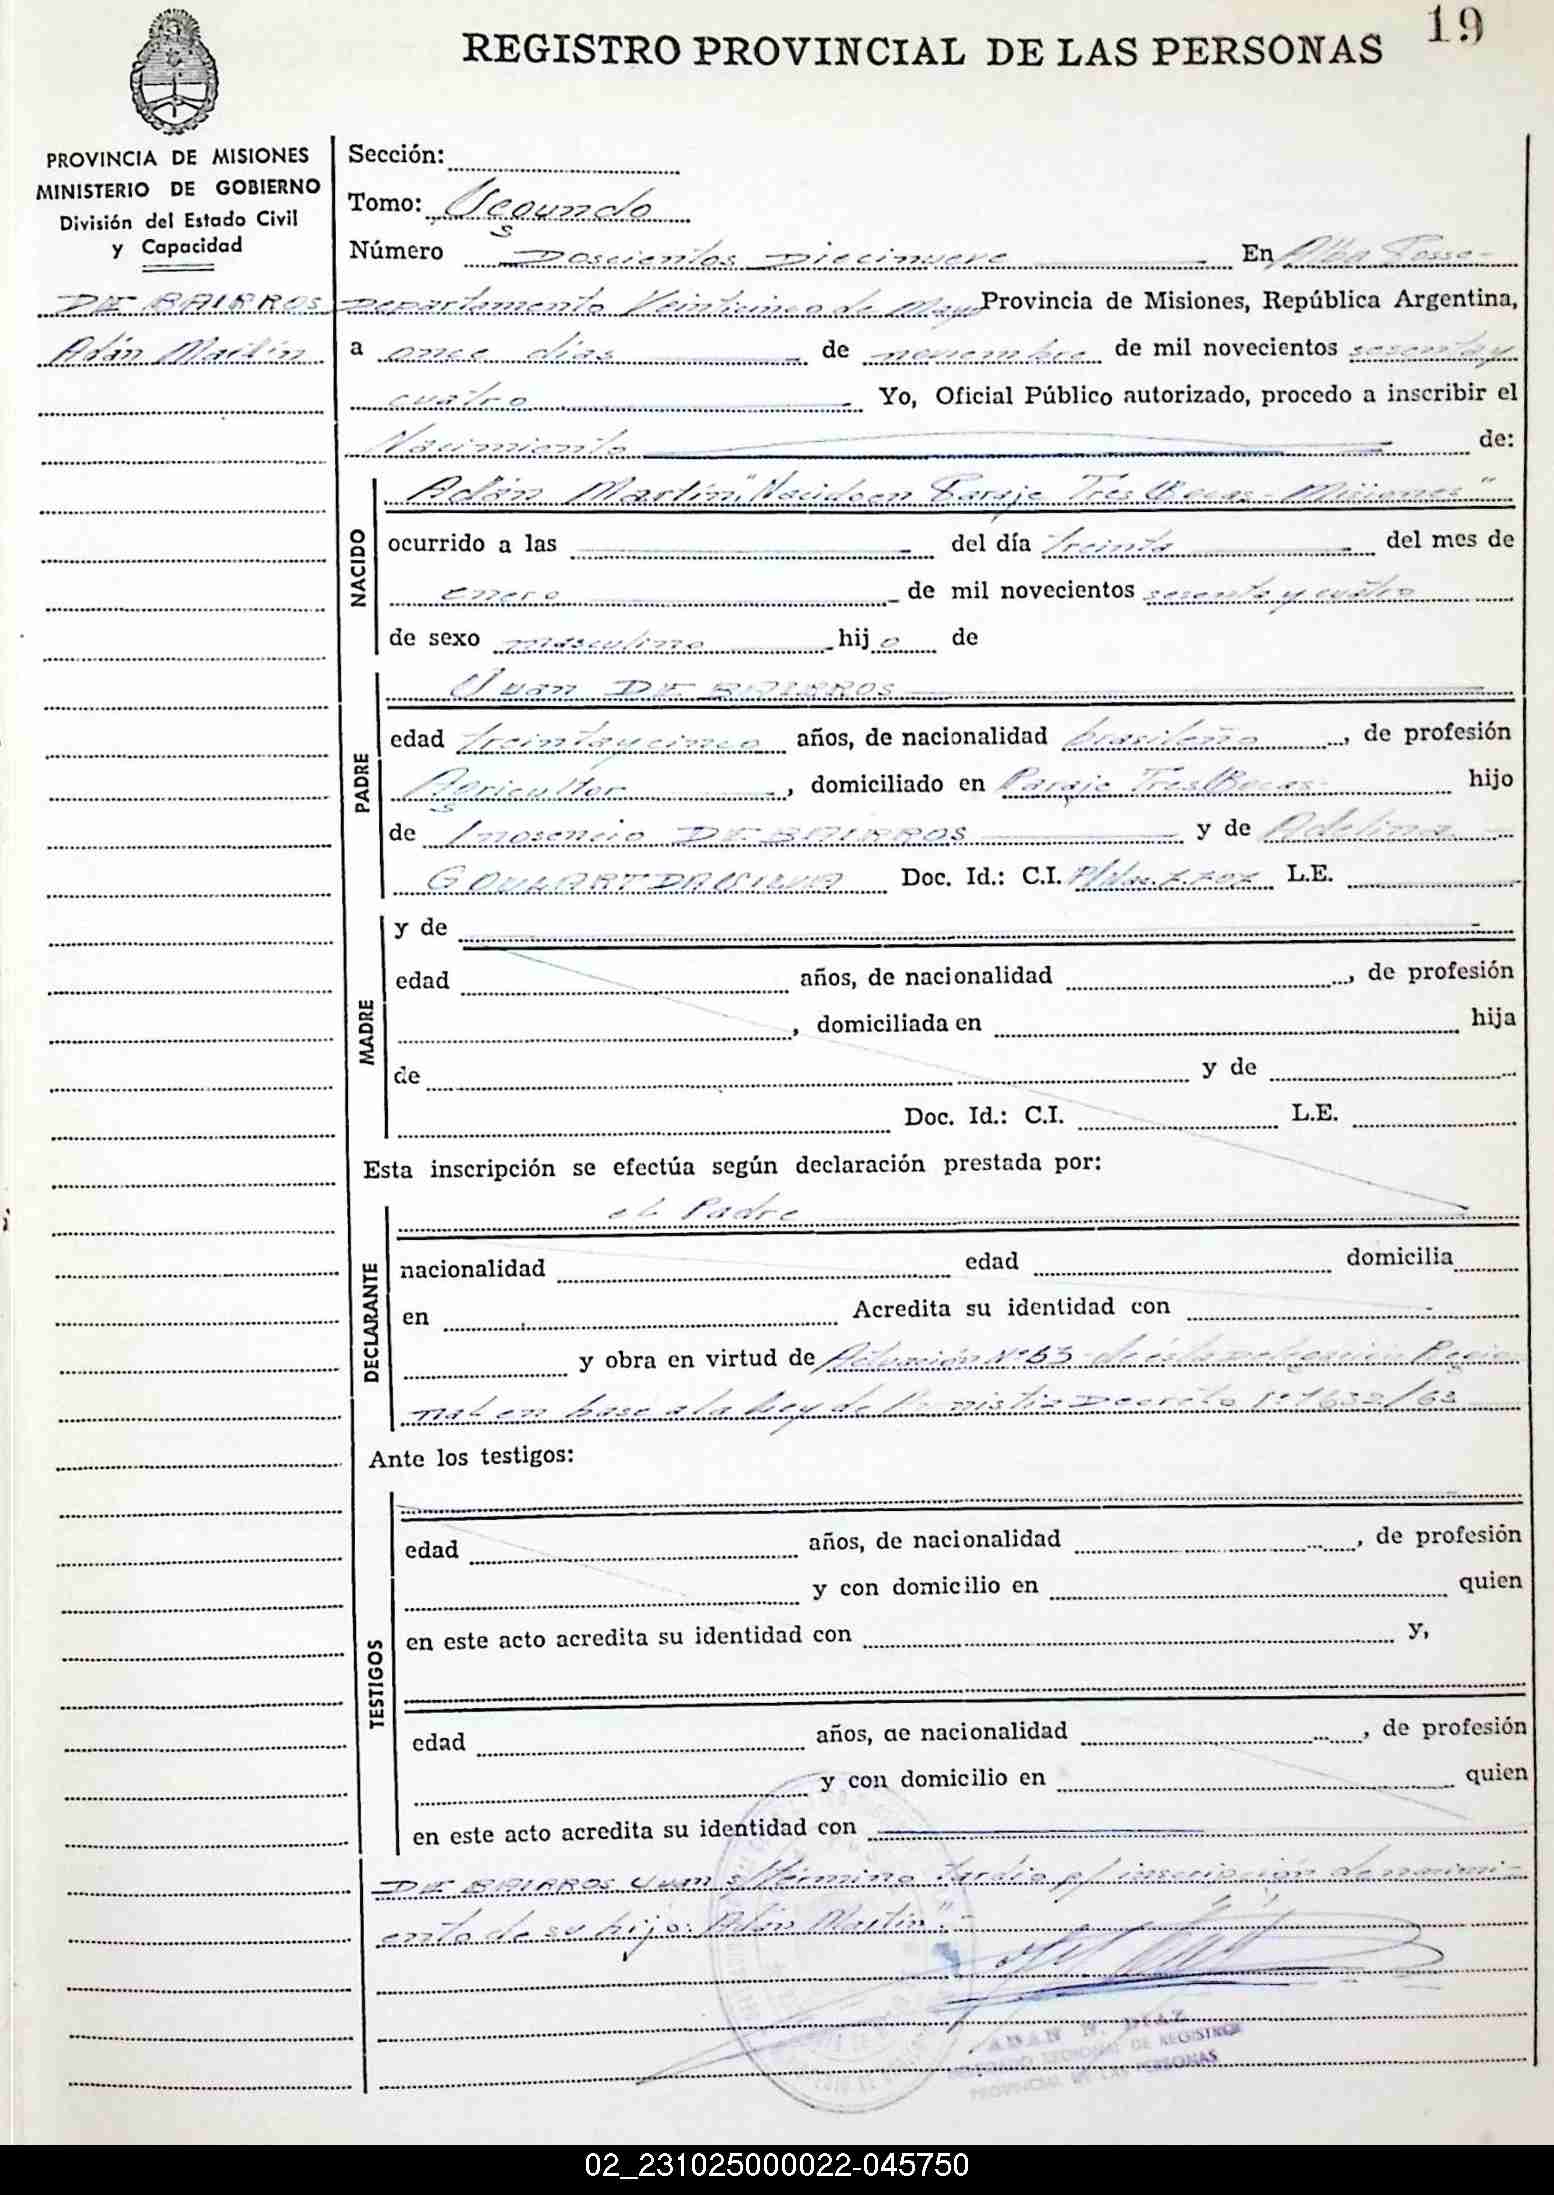 19
REGISTRO PROVINCIAL DE LAS PERSONAS
PROVINCIA DE MISIONES
MINISTERIO DE GOBIERNO
División del Estado Civil
y Capacidad
DE BAIRROS
Adán Martín
Sección:
Tomo: Segundo
Número Doscientos Diecinueve En Alba Posse-
Departamento Veinticinco de Mayo Provincia de Misiones, República Argentina,
a once días de noviembre de mil novecientos sesenta y
cuatro Yo, Oficial Público autorizado, procedo a inscribir el
Nacimiento de:
NACIDO
Adán Martín "Nacido en Paraje Tres Bocas - Misiones"
ocurrido a las del día treinta del mes de
enero de mil novecientos sesenta y cuatro
de sexo masculino hijo de
PADRE
Juan DE BAIRROS
edad treinta y cinco años, de nacionalidad brasileño, de profesión
Agricultor, domiciliado en Paraje Tres Bocas- hijo
de Inosencio DE BAIRROS y de Adelina
GOULART DA SILVA Doc. Id.: C.I. L.E.
MADRE
y de
edad años, de nacionalidad , de profesión
, domiciliada en hija
de y de
Doc. Id.: C.I. L.E.
Esta inscripción se efectúa según declaración prestada por:
DECLARANTE
el Padre
nacionalidad edad domicilia
en Acredita su identidad con
y obra en virtud de Actuación Nº 63 - de ésta Delegación Regio-
nal en base a la Ley de Amnistía Decreto Nº 1632/63
Ante los testigos:
TESTIGOS
edad años, de nacionalidad , de profesión
y con domicilio en quien
en este acto acredita su identidad con y,
edad años, de nacionalidad , de profesión
y con domicilio en quien
en este acto acredita su identidad con
DE BAIRROS Juan s/término tardio p/ inscripción de nacimi-
ento de su hijo: Adán Martín".-
ADAN N. DIAZ
DELEGADO REGIONAL DE REGISTROS
PROVINCIAL DE LAS PERSONAS
02_231025000022-045750